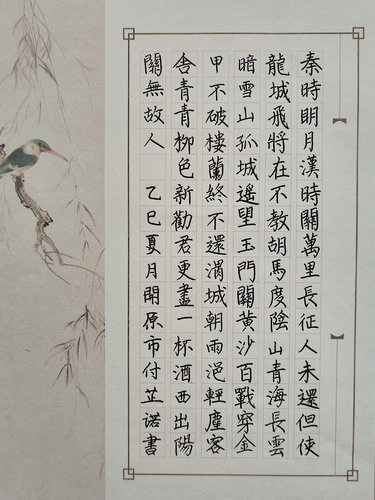 秦時明月漢時關萬里長征人未還但使
龍城飛將在不教胡馬度陰山青海長雲
暗雪山孤城遙望玉門關黃沙百戰穿金
甲不破樓蘭終不還渭城朝雨浥輕塵客
舍青青柳色新勸君更盡一杯酒西出陽
關無故人 乙巳夏月開原市付芷诺書